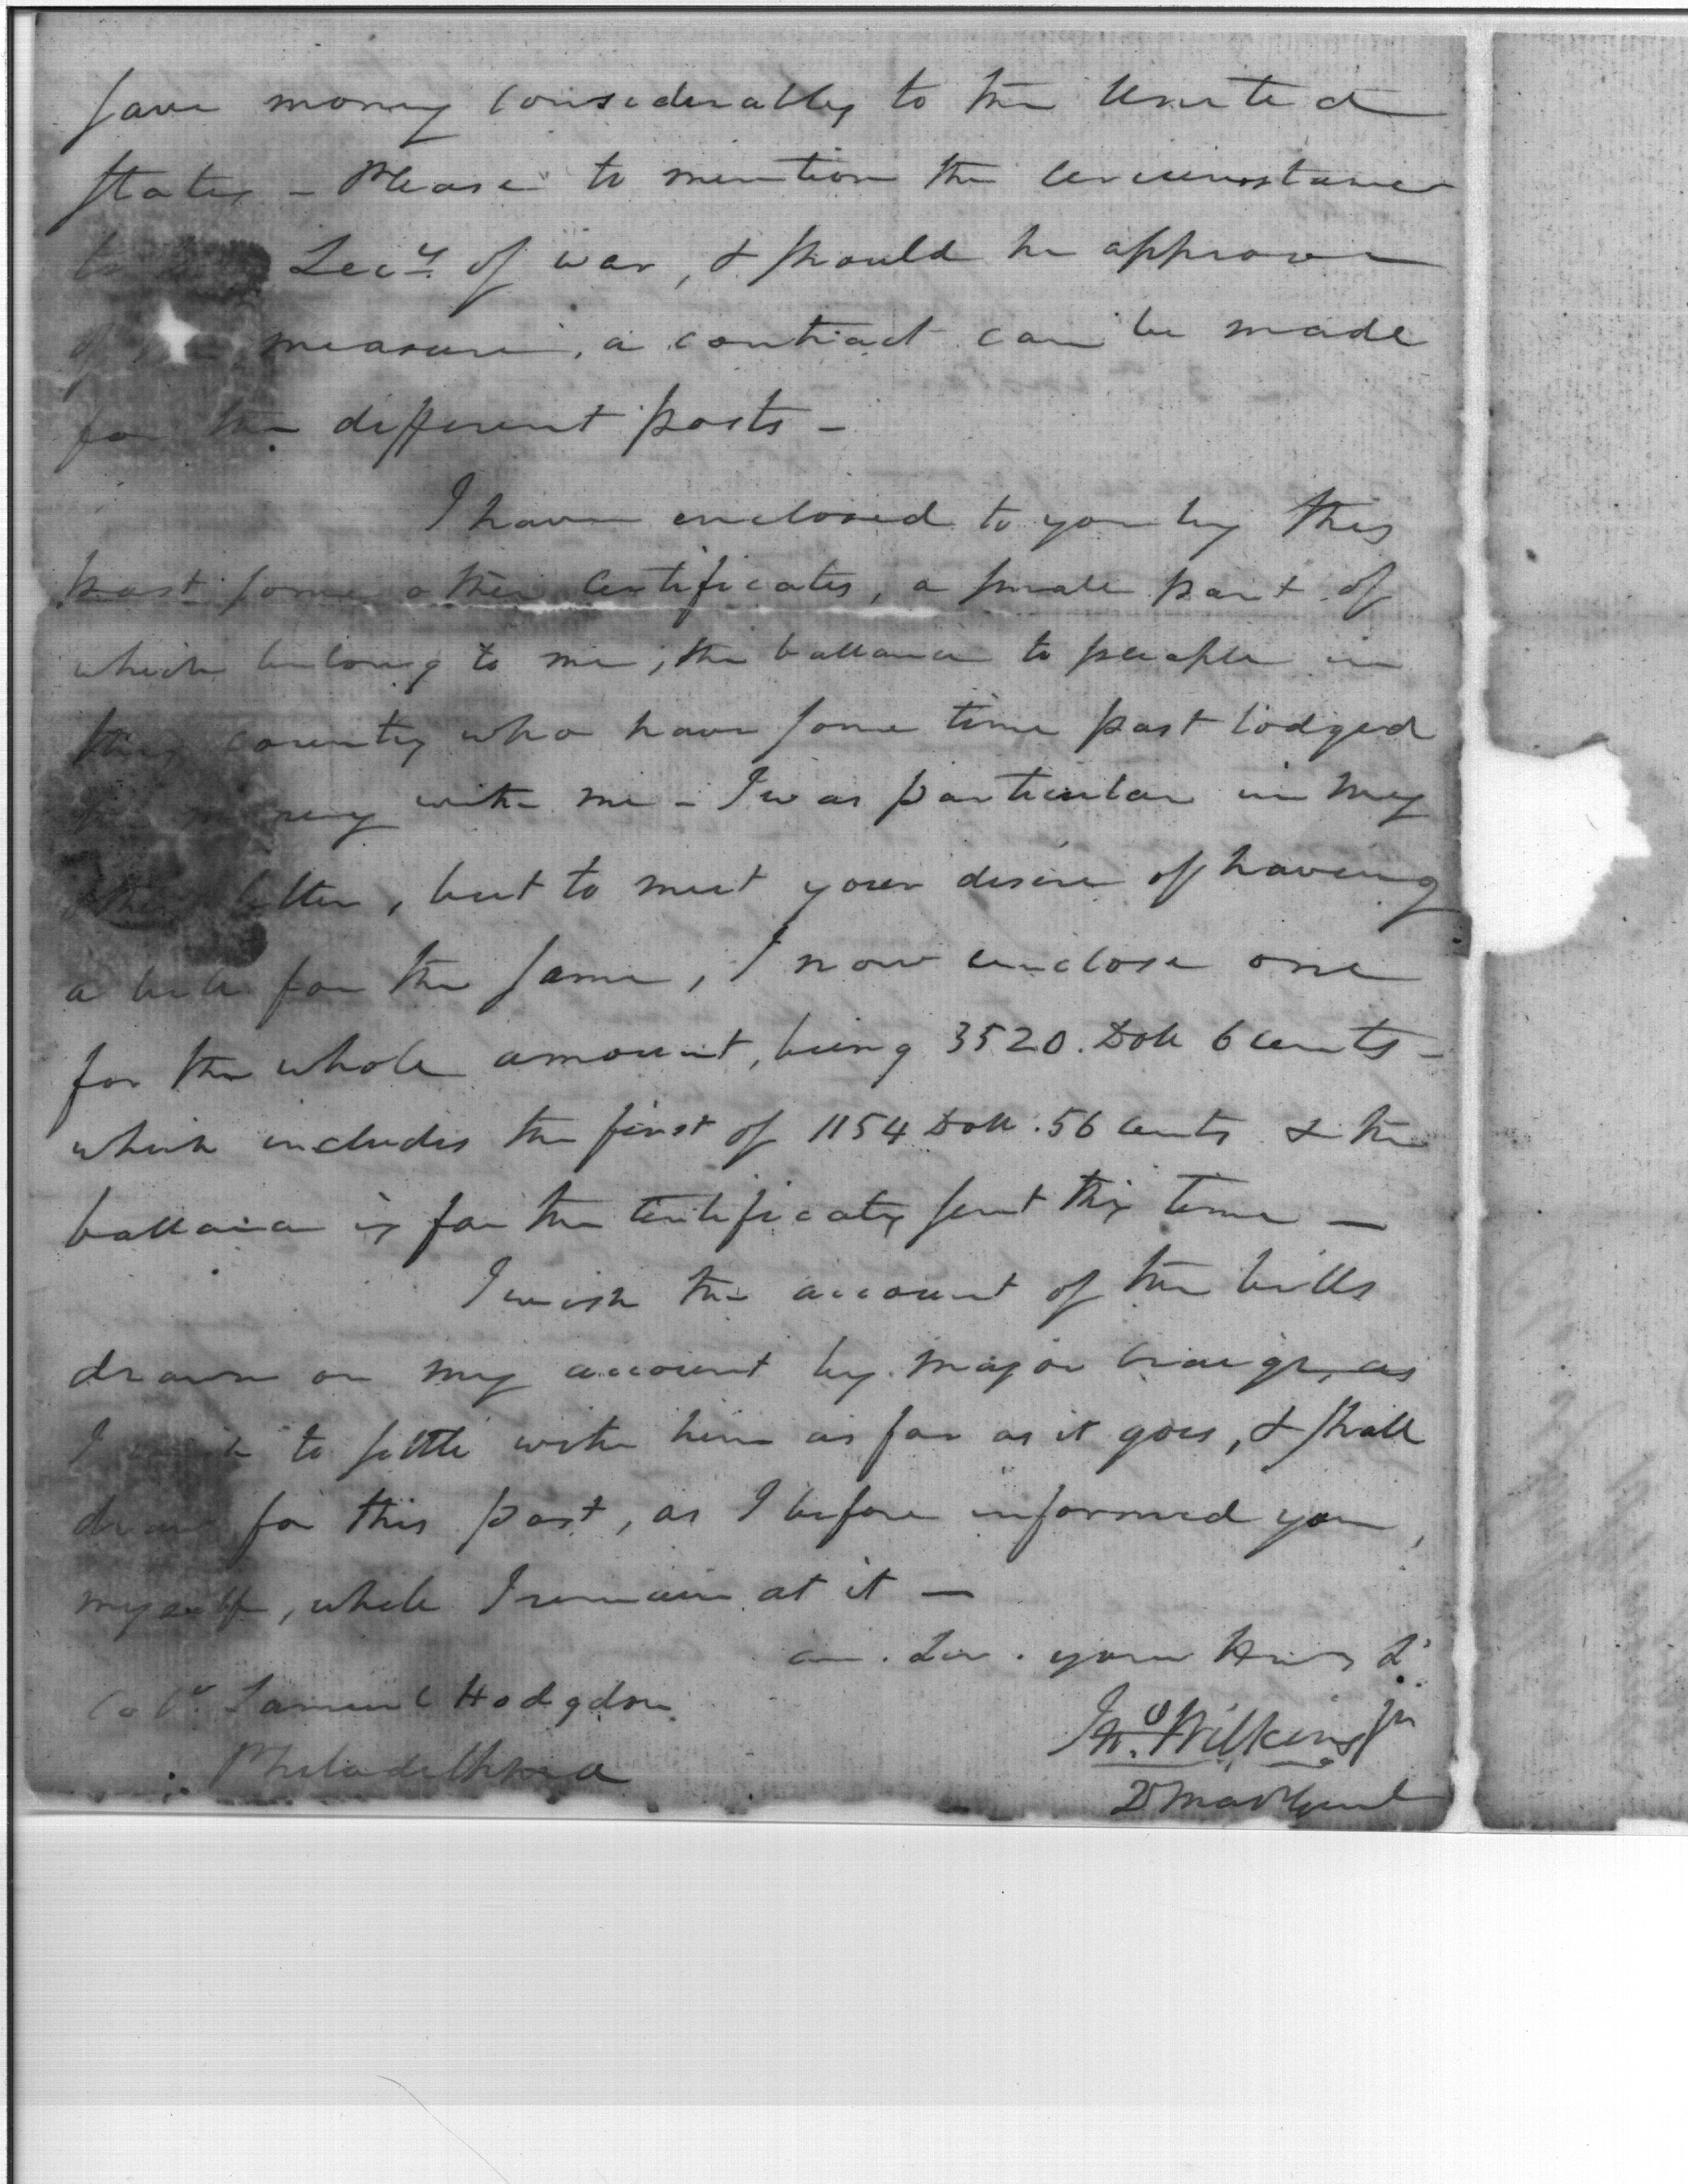 save money considerably to the United
States - Please to mention the circumstance
to the Secy. of war, & should he approve
of the measure, a contract can be made
for the different posts -
I have enclosed to you by this
post some other Certificates, a small part of
which belong to me; the ballance to people in
this country who have some time past lodged
money with me - I was particular in my
other letter, but to meet your desire of having
a bill for the same, I now enclose one
for the whole amount, being 3520. Doll 6 cents -
which includes the first of 1154 Doll. 56 cents & the
ballance is for the Certificates sent this time -
I wish the account of the bills
drawn on my account by Major Craige, as
I wish to settle with him as far as it goes, & shall
draw for this post, as I before informed you,
myself, while I remain at it -
Sir. your
Colo. Samuel Hodgdon
Jno. Wilkins jr
Philadelphia